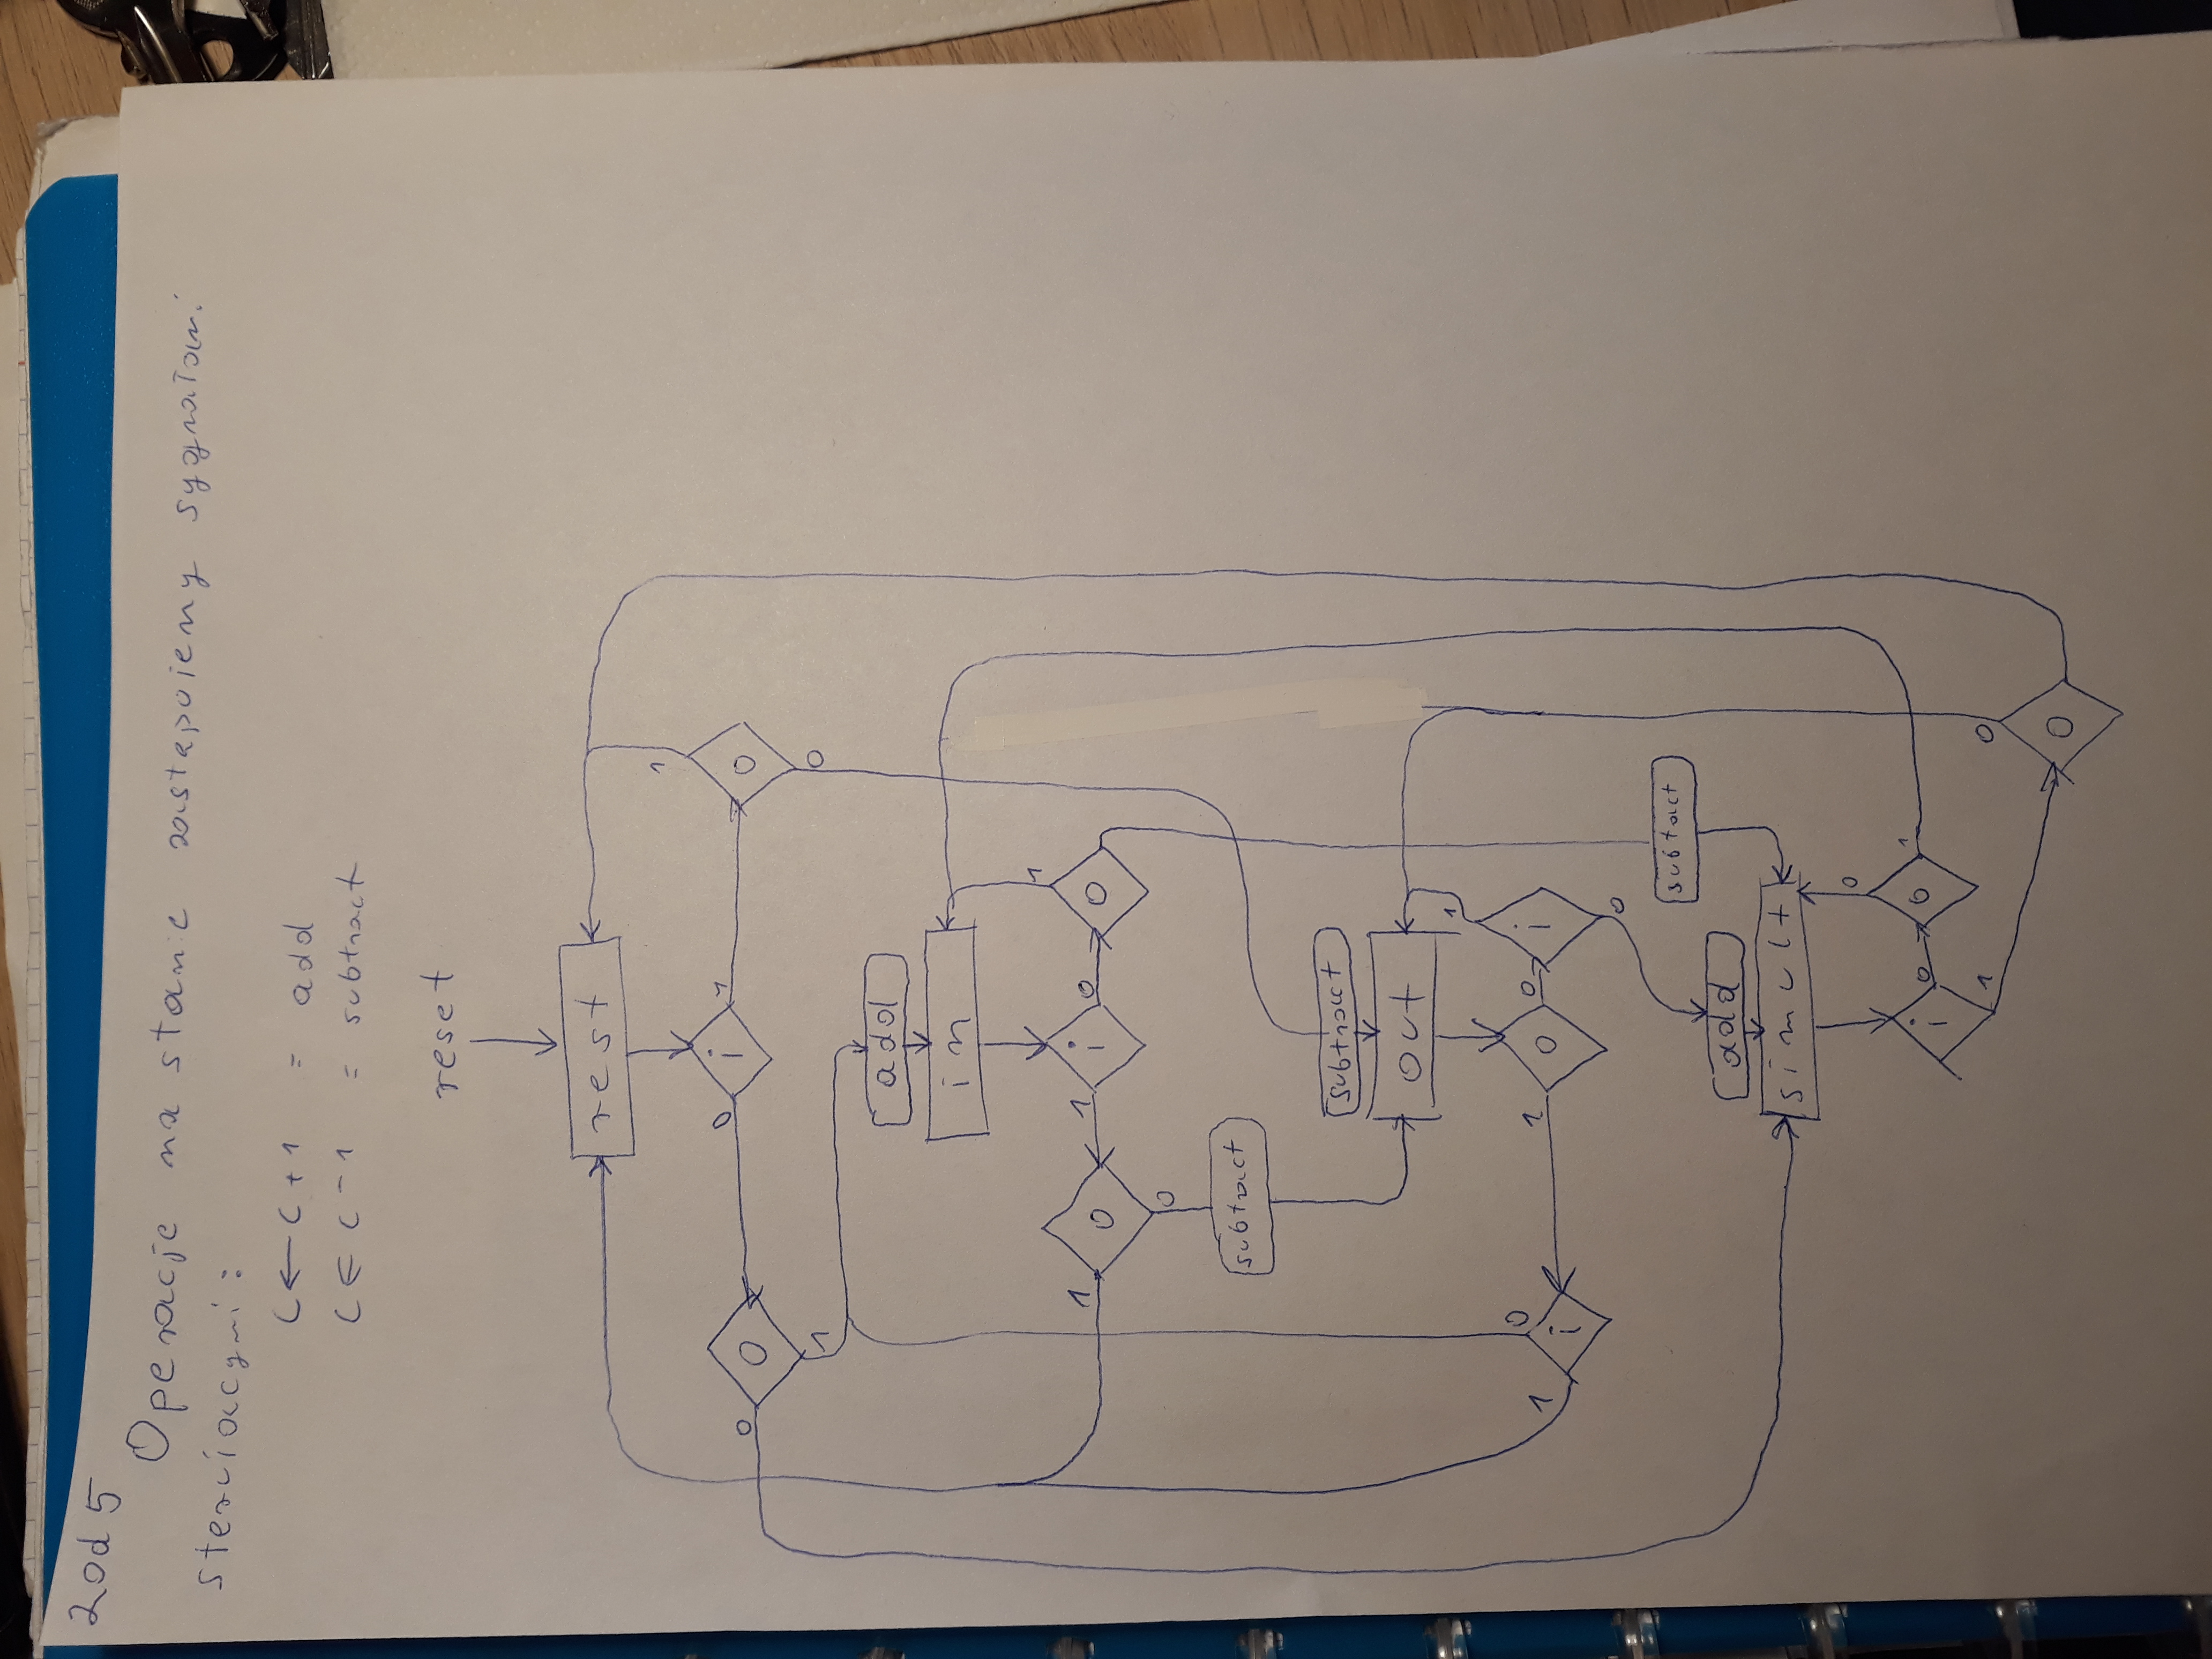 Zad 5
Operacje na stanie zastępujemy sygnałami
sterującymi:
C ← C + 1 = add
C ← C - 1 = subtract
reset
rest
0 i 1 1
0 0 0
1 0
add
in
1
1 0 1 i 0 0
0
subtract
subtract
out
1
0
1 i 1 0 0 i
0
subtact
add
simult
0
i 0 0 1
1 0
0